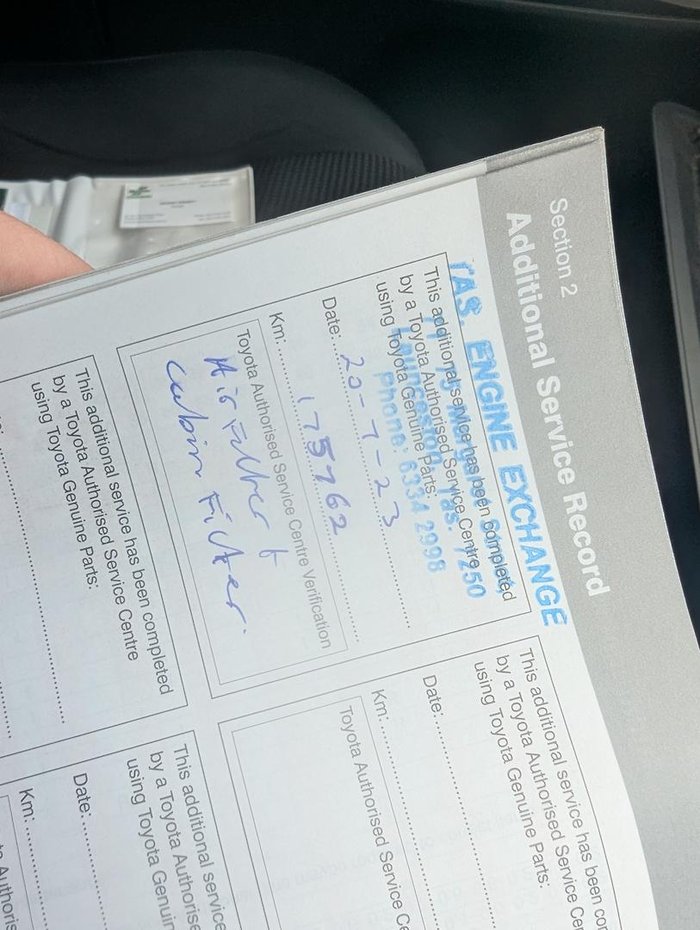 Section 2
Additional Service Record
TAS. ENGINE EXCHANGE
Launceston, Tas. 7250
Phone: 6334 2998
This additional service has been completed
by a Toyota Authorised Service Centre
using Toyota Genuine Parts:
Date: 20-7-23
Km: 175762
Toyota Authorised Service Centre Verification
Air Filter &
Cabin Filter.
This additional service has been
by a Toyota Authorised Service
using Toyota Genuine Parts:
Date:
Km:
Toyota Authorised Service
This additional service has been completed
by a Toyota Authorised Service Centre
using Toyota Genuine Parts:
This additional service
by a Toyota
using Toyota
Date:
Km: